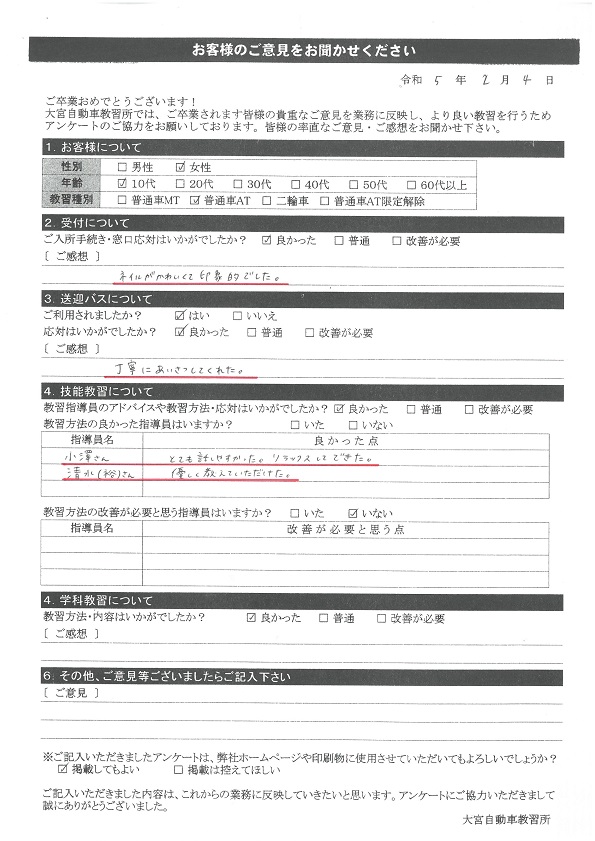 お客様のご意見をお聞かせください
令和 5 年 2 月 4 日
ご卒業おめでとうございます！
大宮自動車教習所では、ご卒業されます皆様の貴重なご意見を業務に反映し、より良い教習を行うため
アンケートのご協力をお願いしております。皆様の率直なご意見・ご感想をお聞かせ下さい。
1. お客様について
性別 □ 男性 ☑ 女性
年齢 ☑ 10代 □ 20代 □ 30代 □ 40代 □ 50代 □ 60代以上
教習種別 □ 普通車MT ☑ 普通車AT □ 二輪車 □ 普通車AT限定解除
2. 受付について
ご入所手続き・窓口応対はいかがでしたか？ ☑ 良かった □ 普通 □ 改善が必要
［ ご感想 ］
ネイルがかわいくて印象的でした。
3. 送迎バスについて
ご利用されましたか？ ☑ はい □ いいえ
応対はいかがでしたか？ ☑ 良かった □ 普通 □ 改善が必要
［ ご感想 ］
丁寧にあいさつしてくれた。
4. 技能教習について
教習指導員のアドバイスや教習方法・応対はいかがでしたか？ ☑ 良かった □ 普通 □ 改善が必要
教習方法の良かった指導員はいますか？ □ いた □ いない
指導員名 良かった点
小澤さん とても話しやすかった。リラックスしてできた。
清水(裕)さん 優しく教えていただけた。
教習方法の改善が必要と思う指導員はいますか？ □ いた ☑ いない
指導員名 改善が必要と思う点
4. 学科教習について
教習方法・内容はいかがでしたか？ ☑ 良かった □ 普通 □ 改善が必要
［ ご感想 ］
6. その他、ご意見等ございましたらご記入下さい
［ ご意見 ］
※ご記入いただきましたアンケートは、弊社ホームページや印刷物に使用させていただいてもよろしいでしょうか？
☑ 掲載してもよい □ 掲載は控えてほしい
ご記入いただきました内容は、これからの業務に反映していきたいと思います。アンケートにご協力いただきまして
誠にありがとうございました。
大宮自動車教習所